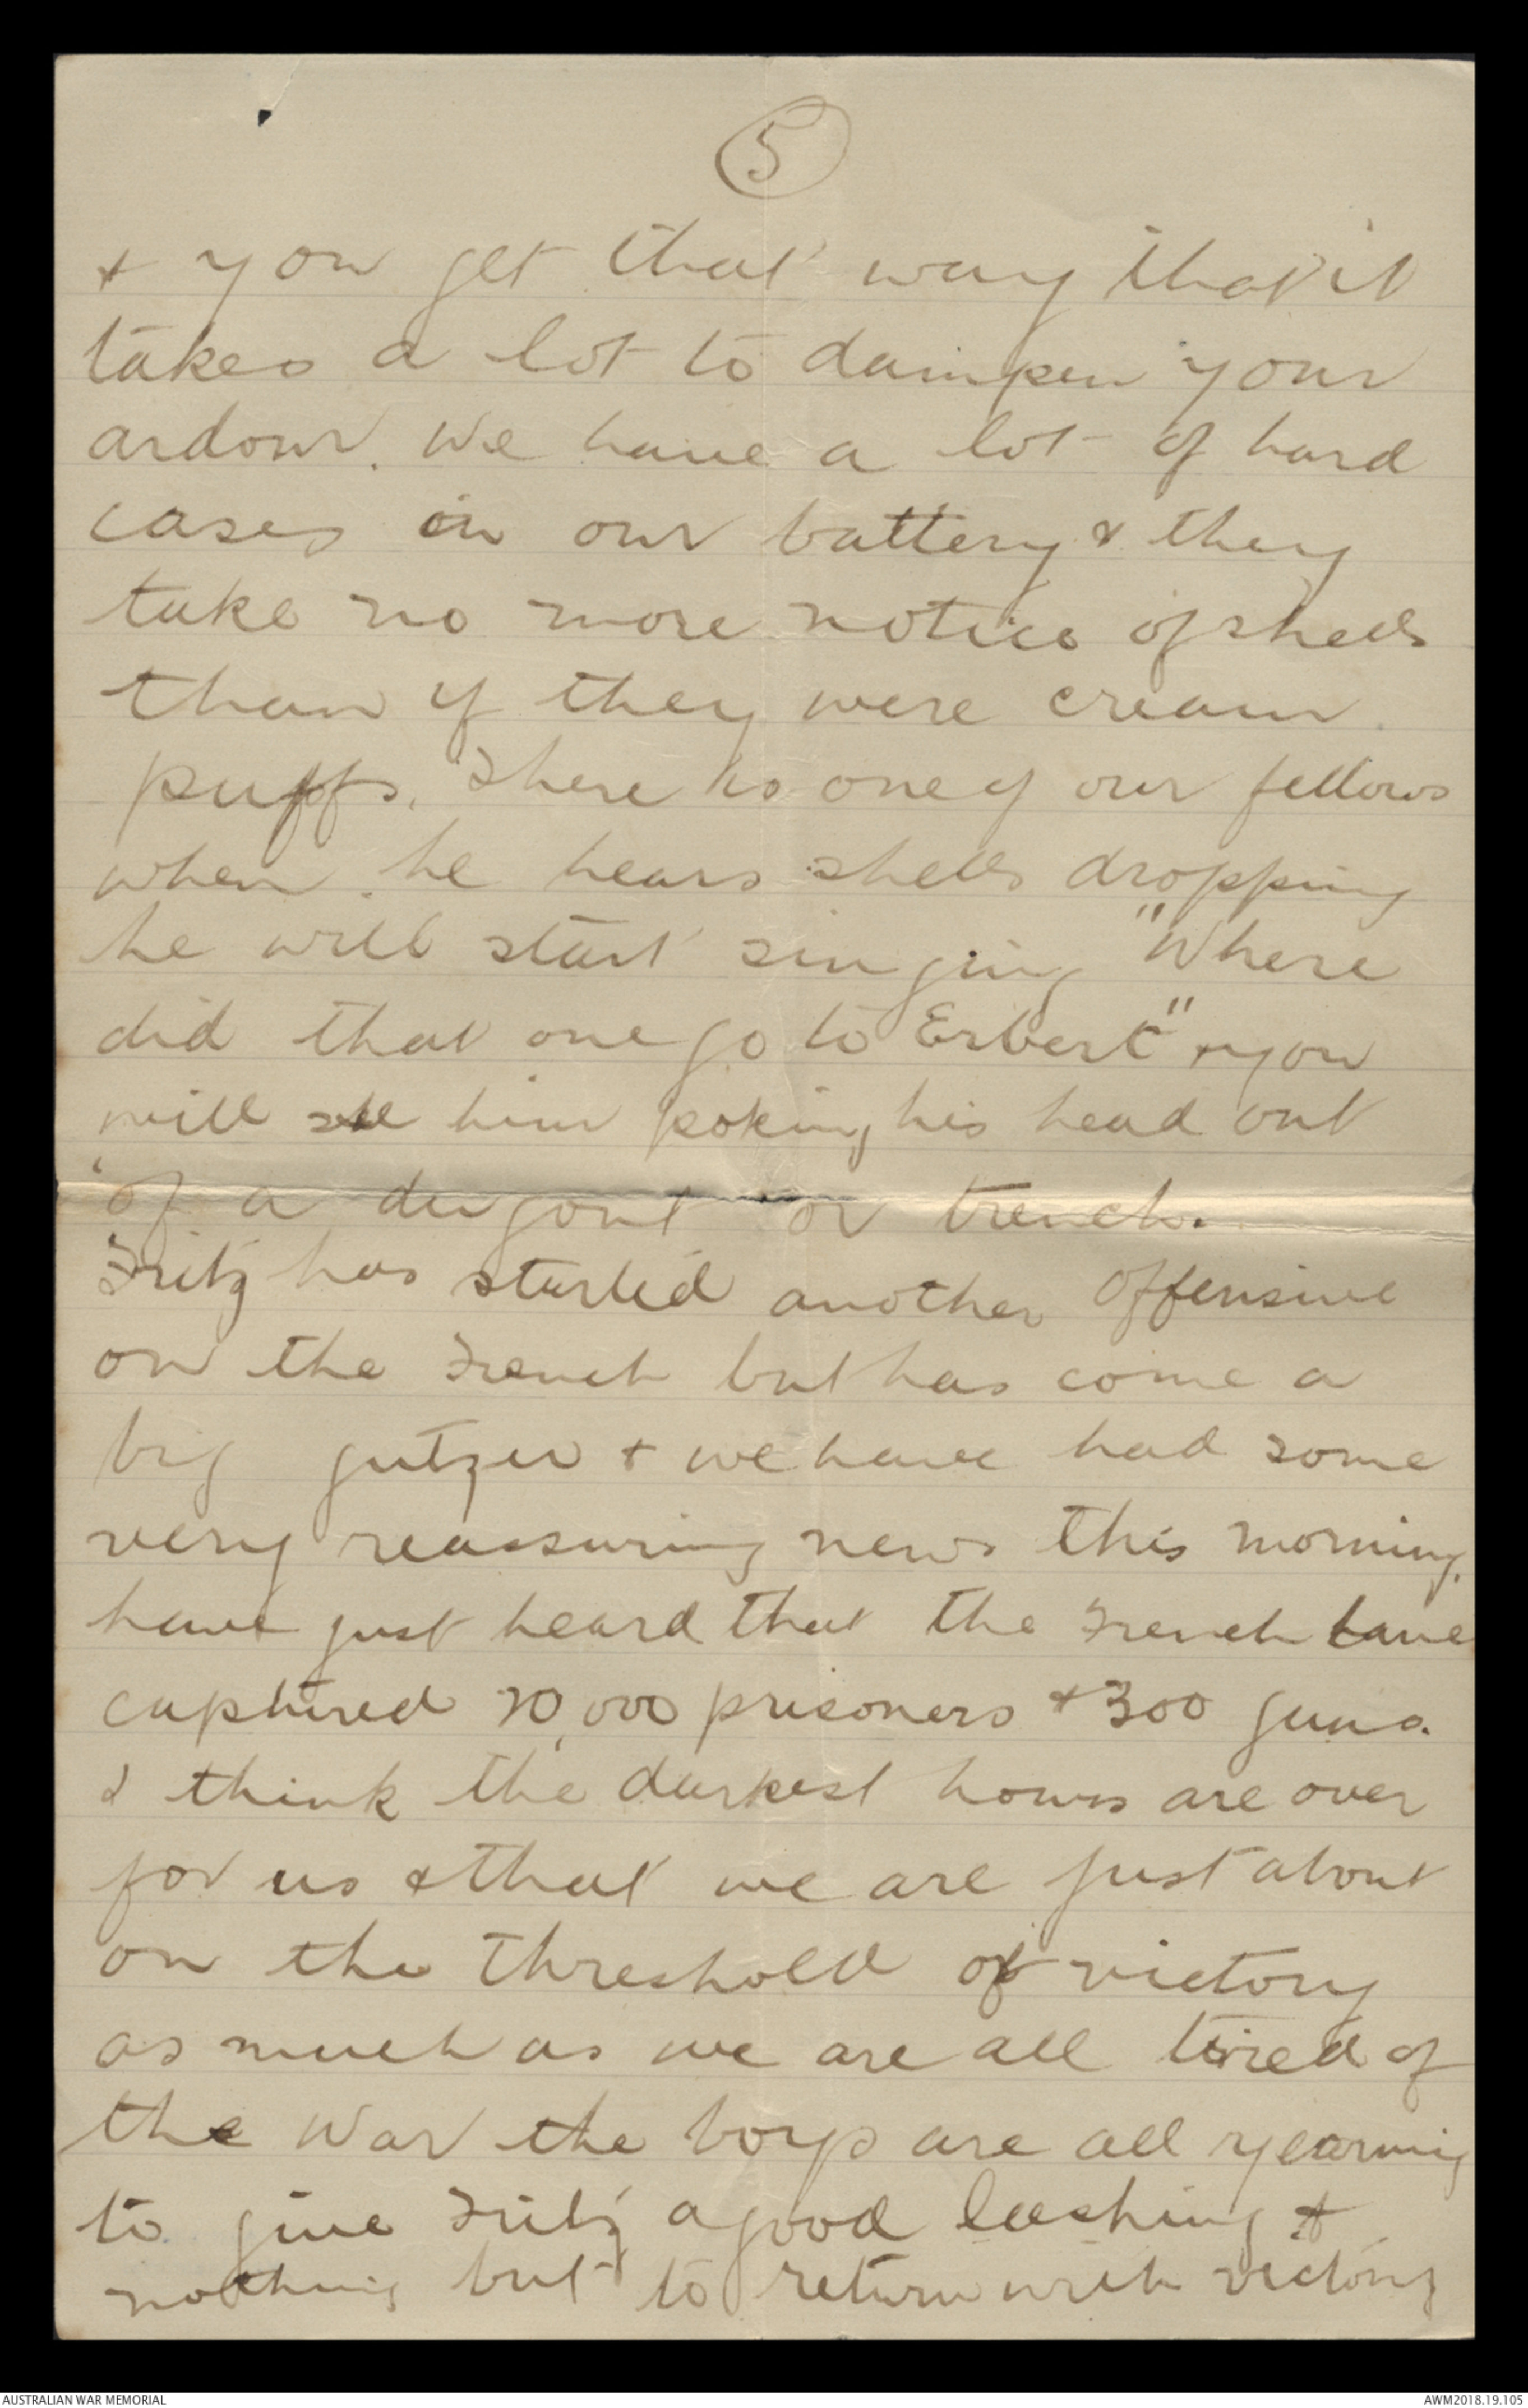 5
& you get that way that it
takes a lot to dampen your
ardour. We have a lot of hard
cases in our battery & they
take no more notice of shells
than if they were cream
puffs. There is one of our fellows
when he hears shells dropping
he will start singing "Where
did that one go to Erbert" & you
will see him poking his head out
of a dugout or trench.
Fritz has started another offensive
on the French but has come a
big gutzer & we have had some
very reassuring news this morning.
have just heard that the French have
captured 20,000 prisoners & 300 guns.
I think the darkest hours are over
for us & that we are just about
on the threshold of victory
as much as we are all tired of
the War the boys are all yearning
to give Fritz a good lashing &
nothing but to return with victory
AUSTRALIAN WAR MEMORIAL
AWM2018.19.105